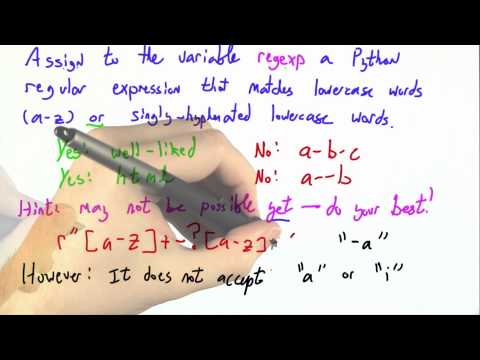 Assign to the variable regexp a Python
regular expression that matches lowercase words
(a-z) or singly-hyphenated lowercase words.
Yes: well-liked No: a-b-c
Yes: html No: a--b
Hint: may not be possible yet — do your best!
r"[a-z]+-?[a-z]+" "-a"
However: It does not accept "a" or "i"